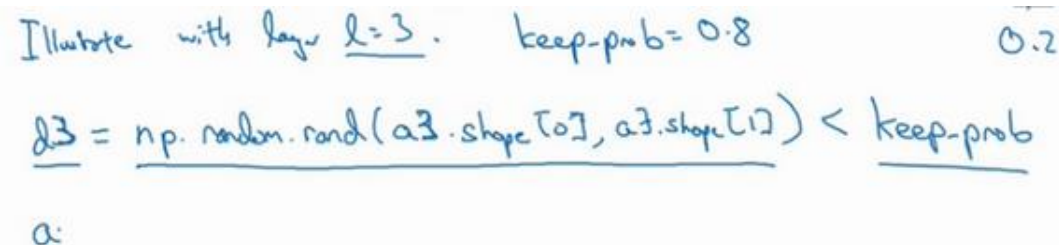 Illustrate with layer l=3. keep-prob=0.8 0.2
d3 = np.random.rand(a3.shape[0], a3.shape[1]) < keep-prob
a